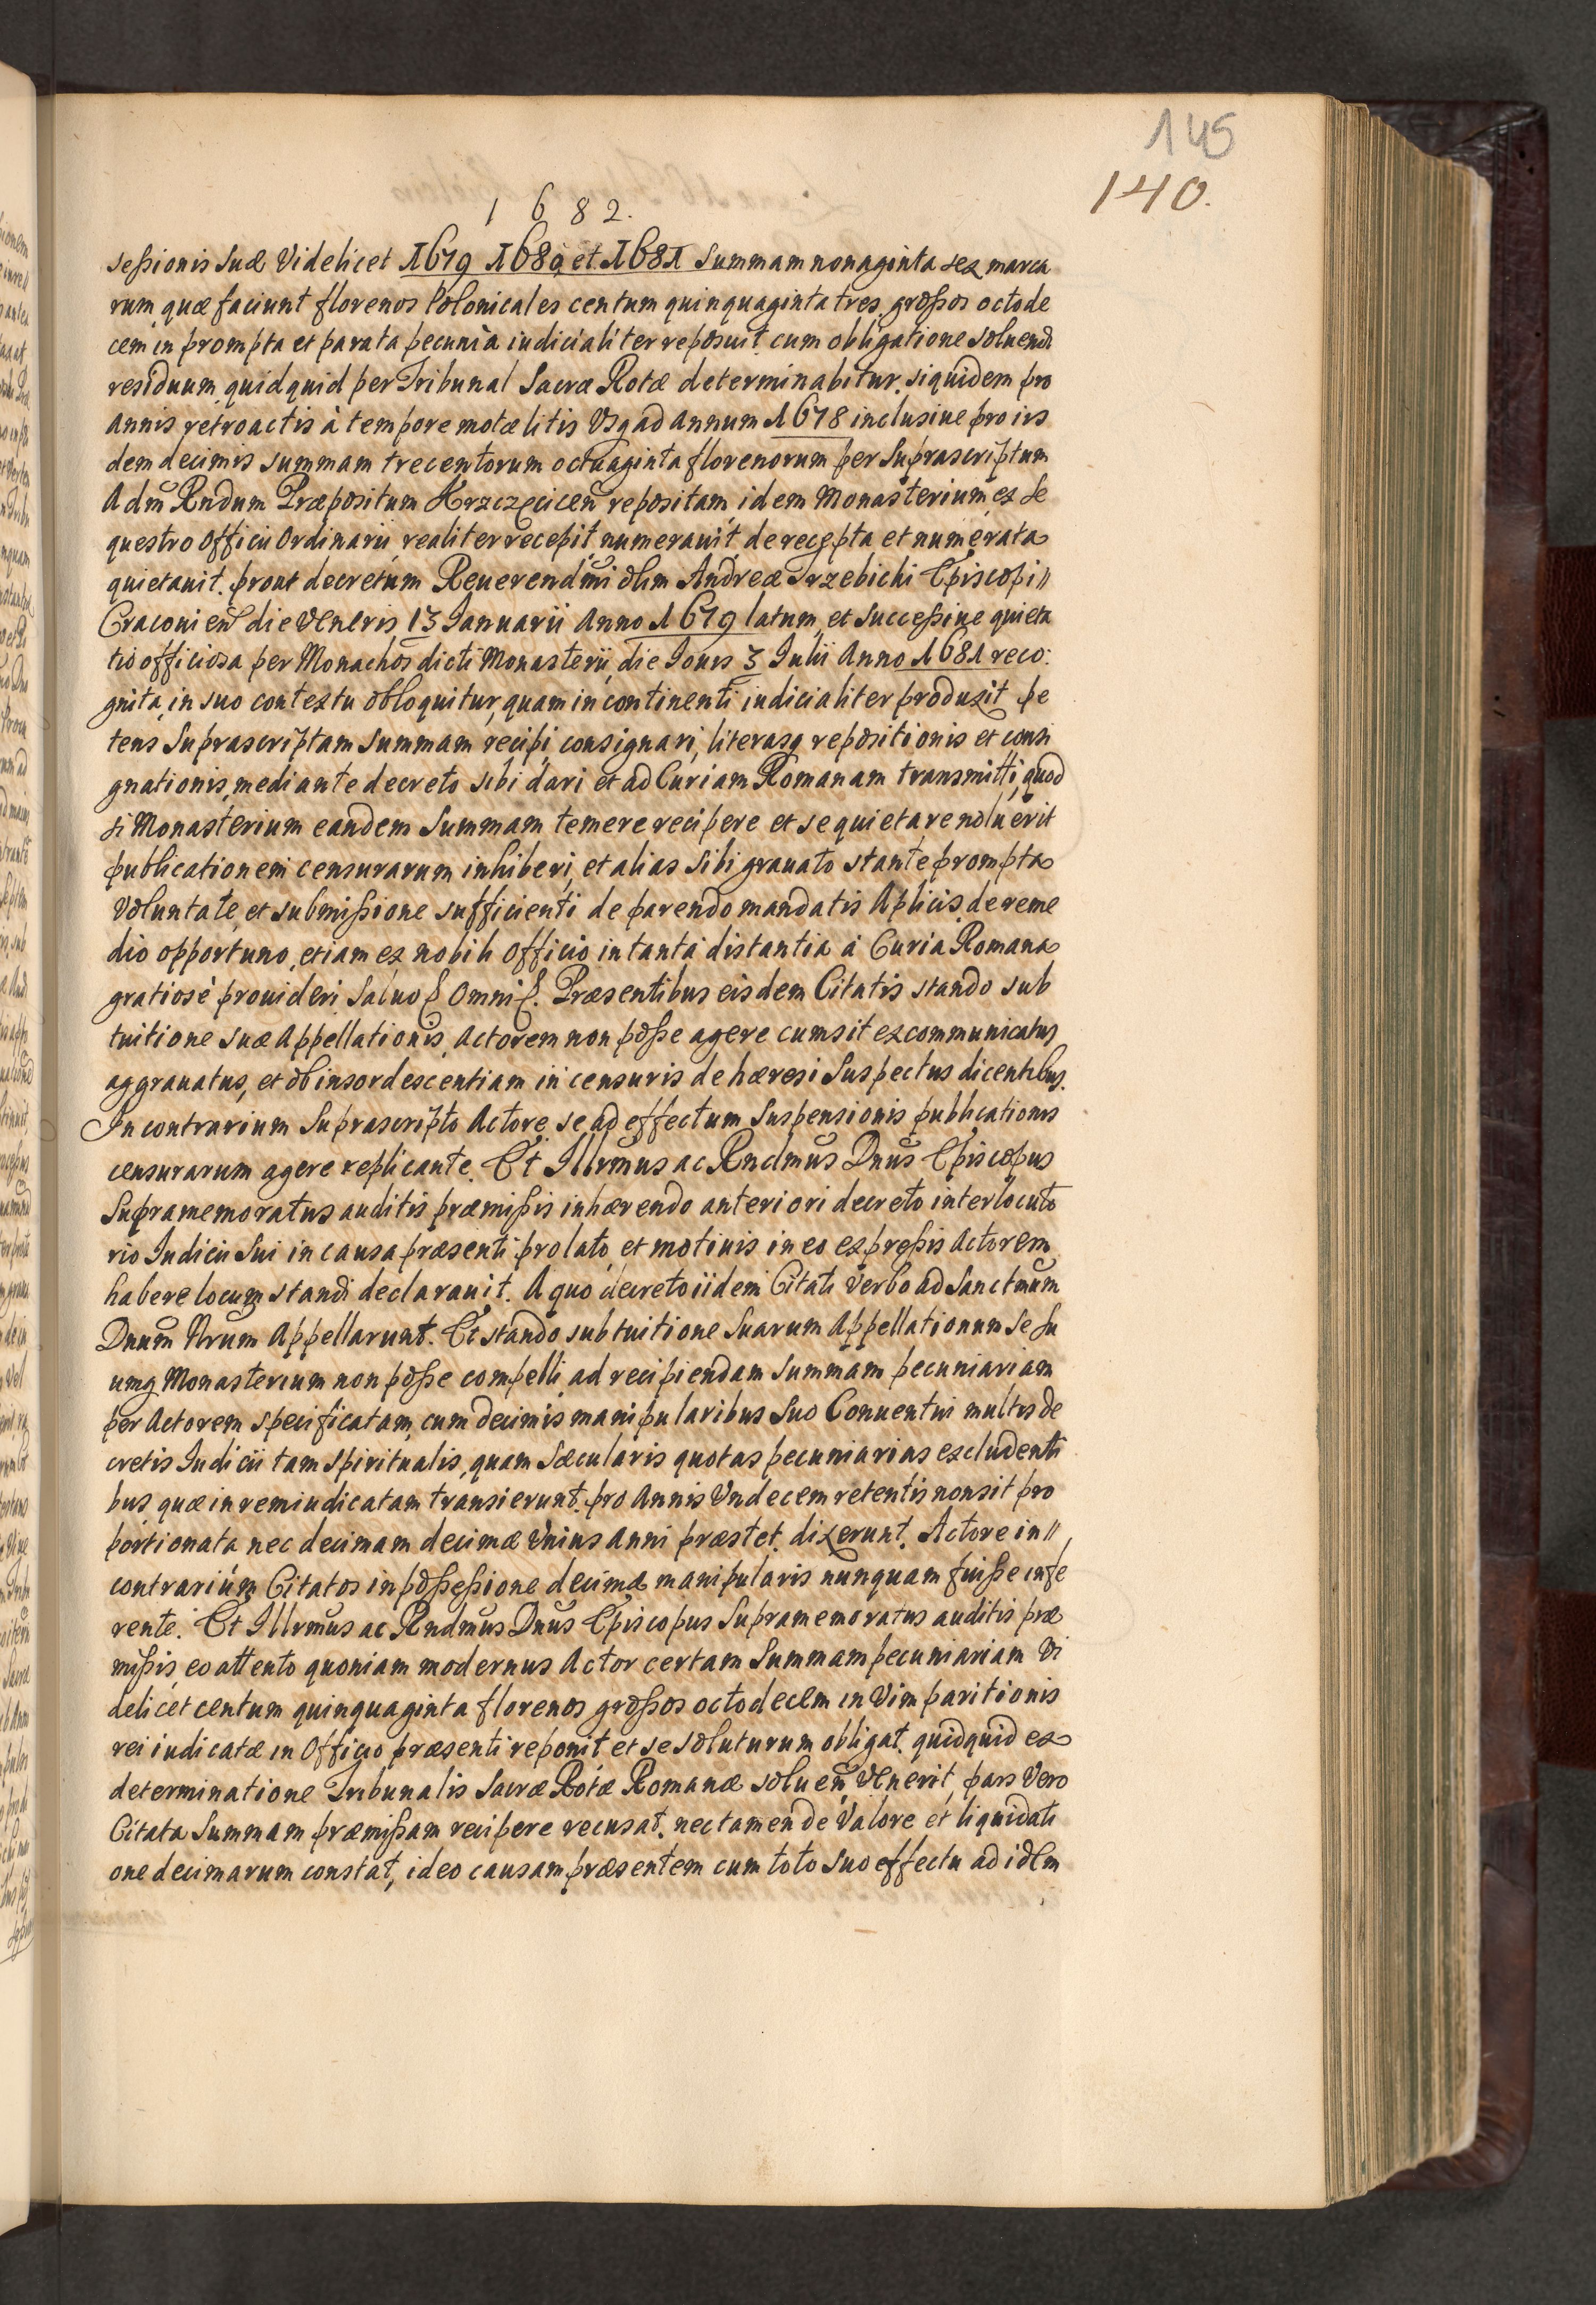 145
140.
1682.
seßionis suæ Videlicet 1679 1680 et 1681 Summam nonaginta sex marca
rum quæ faciunt florenos Polonicales centum quinquaginta tres großos octode
cem in prompta et parata pecunia iudicialiter reposuit cum obligatione soluendi
residuum quidquid per Tribunal Sacræ Rotæ determinabitur, siquidem pro
Annis retroactis à tempore motæ litis Usq ad Annum 1678 inclusiue pro iis
dem decimis summam trecentorum octuaginta florenorum per Suprascriptum
Adm Rndum Præpositum Krzczęcicen repositam, idem Monasterium ex se
questro Officii Ordinarii realiter recepit, numerauit, de recepta et numerata
quietauit. prout decretum Reuerendmi olim Andreæ Trzebicki Episcopi
Cracouien die Veneris 13 Ianuarii Anno 1679 latum, et Succeßiue quieta
tio officiosa per Monachos dicti Monasterii, die Iouis 3 Iulii Anno 1681 reco:
gnita, in suo contextu obloquitur, quam in continenti iudicialiter produxit pe
tens Suprascriptam Summam recipi, consignari, literasq repositionis et consi
gnationis, mediante decreto sibi dari et ad Curiam Romanam transmitti, quod
si Monasterium eandem Summam temere recipere et se quietare noluerit
publicationem censurarum inhiberi, et alias sibi grauato stante prompta
Voluntate, et submißione sufficienti de parendo mandatis Aplicis, de reme
dio opportuno, etiam ex nobili Officio in tanta distantia à Curia Romana
gratiosè prouideri Saluo & Omni &. Præsentibus eisdem Citatis stando sub
tuitione suæ Appellationis, Actorem non poße agere cum sit excommunicatus
aggrauatus, et ob insordescentiam in censuris de hæresi Suspectus dicentibus.
In contrarium Suprascripto Actore se ad effectum Suspensionis publicationis
censurarum agere replicante. Et Illrmus ac Rndmus Dnus Episcopus
Supramemoratus auditis præmißis inhærendo anteriori decreto interlocuto
rio Iudicii Sui in causa præsenti prolato, et motiuis in eo expreßis Actorem
habere locum standi declarauit. A quo decreto iidem Citati Verbo ad Sanctmum
Dnum Nrum Appellarunt. Et stando sub tuitione Suarum Appellationum Se su
umq Monasterium non poße compelli, ad recipiendam Summam pecuniariam
per Actorem specificatam, cum decimis manipularibus Suo Conuentui multis de
cretis Iudicii tam Spiritualis, quam Sæcularis quotas pecuniarias excludenti
bus quæ in rem iudicatam transierunt, pro Annis Undecem retentis non sit pro
portionata nec decimam decimæ Unius Anni præstet, dixerunt. Actore in
contrarium Citatos in poßeßione decimæ manipularis nunquam fuiße infe
rente. Et Illrmus ac Rndmus Dnus Episcopus Supramemoratus auditis præ
mißis, eo attento quoniam modernus Actor certam Summam pecuniariam Vi
delicet centum quinquaginta florenos großos octodecem in Vim paritionis
rei iudicatæ in Officio præsenti reponit et se soluturum obligat, quidquid ex
determinatione Tribunalis Sacræ Rotæ Romanæ soluen Venerit, pars Vero
Citata Summam præmißam recipere recusat, nec tamen de Valore et liquidati
one decimarum constat, ideo causam præsentem cum toto suo effectu ad idem